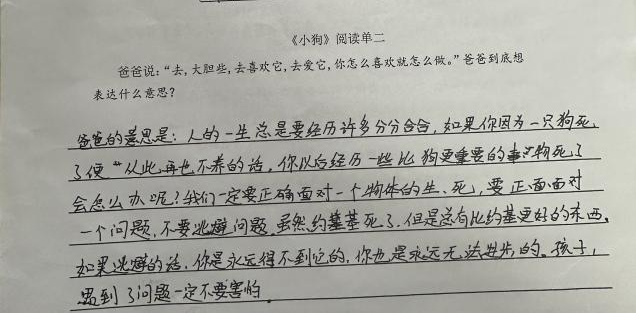 《小狗》阅读单二
爸爸说：“去，大胆些，去喜欢它，去爱它，你怎么喜欢就怎么做。”爸爸到底想
表达什么意思？
爸爸的意思是：人的一生总是要经历许多分分合合，如果你因为一只狗死
了便“从此再也不养的话，你以后经历一些比狗更重要的事物死了
会怎么办呢？我们一定要正确面对一个物体的生、死，要正面面对
一个问题，不要逃避问题。虽然约基死了，但是总有比约基更好的东西。
如果逃避的话，你是永远得不到它的，你也是永远无法进步的。孩子，
遇到了问题一定不要害怕。